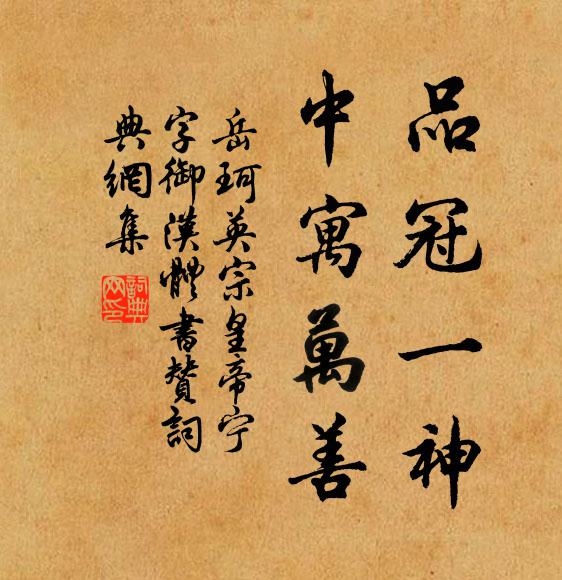 品冠一神
中寓萬善
岳珂英宗皇帝宁
字御漢體書贊詞
典網集
詞典
网印